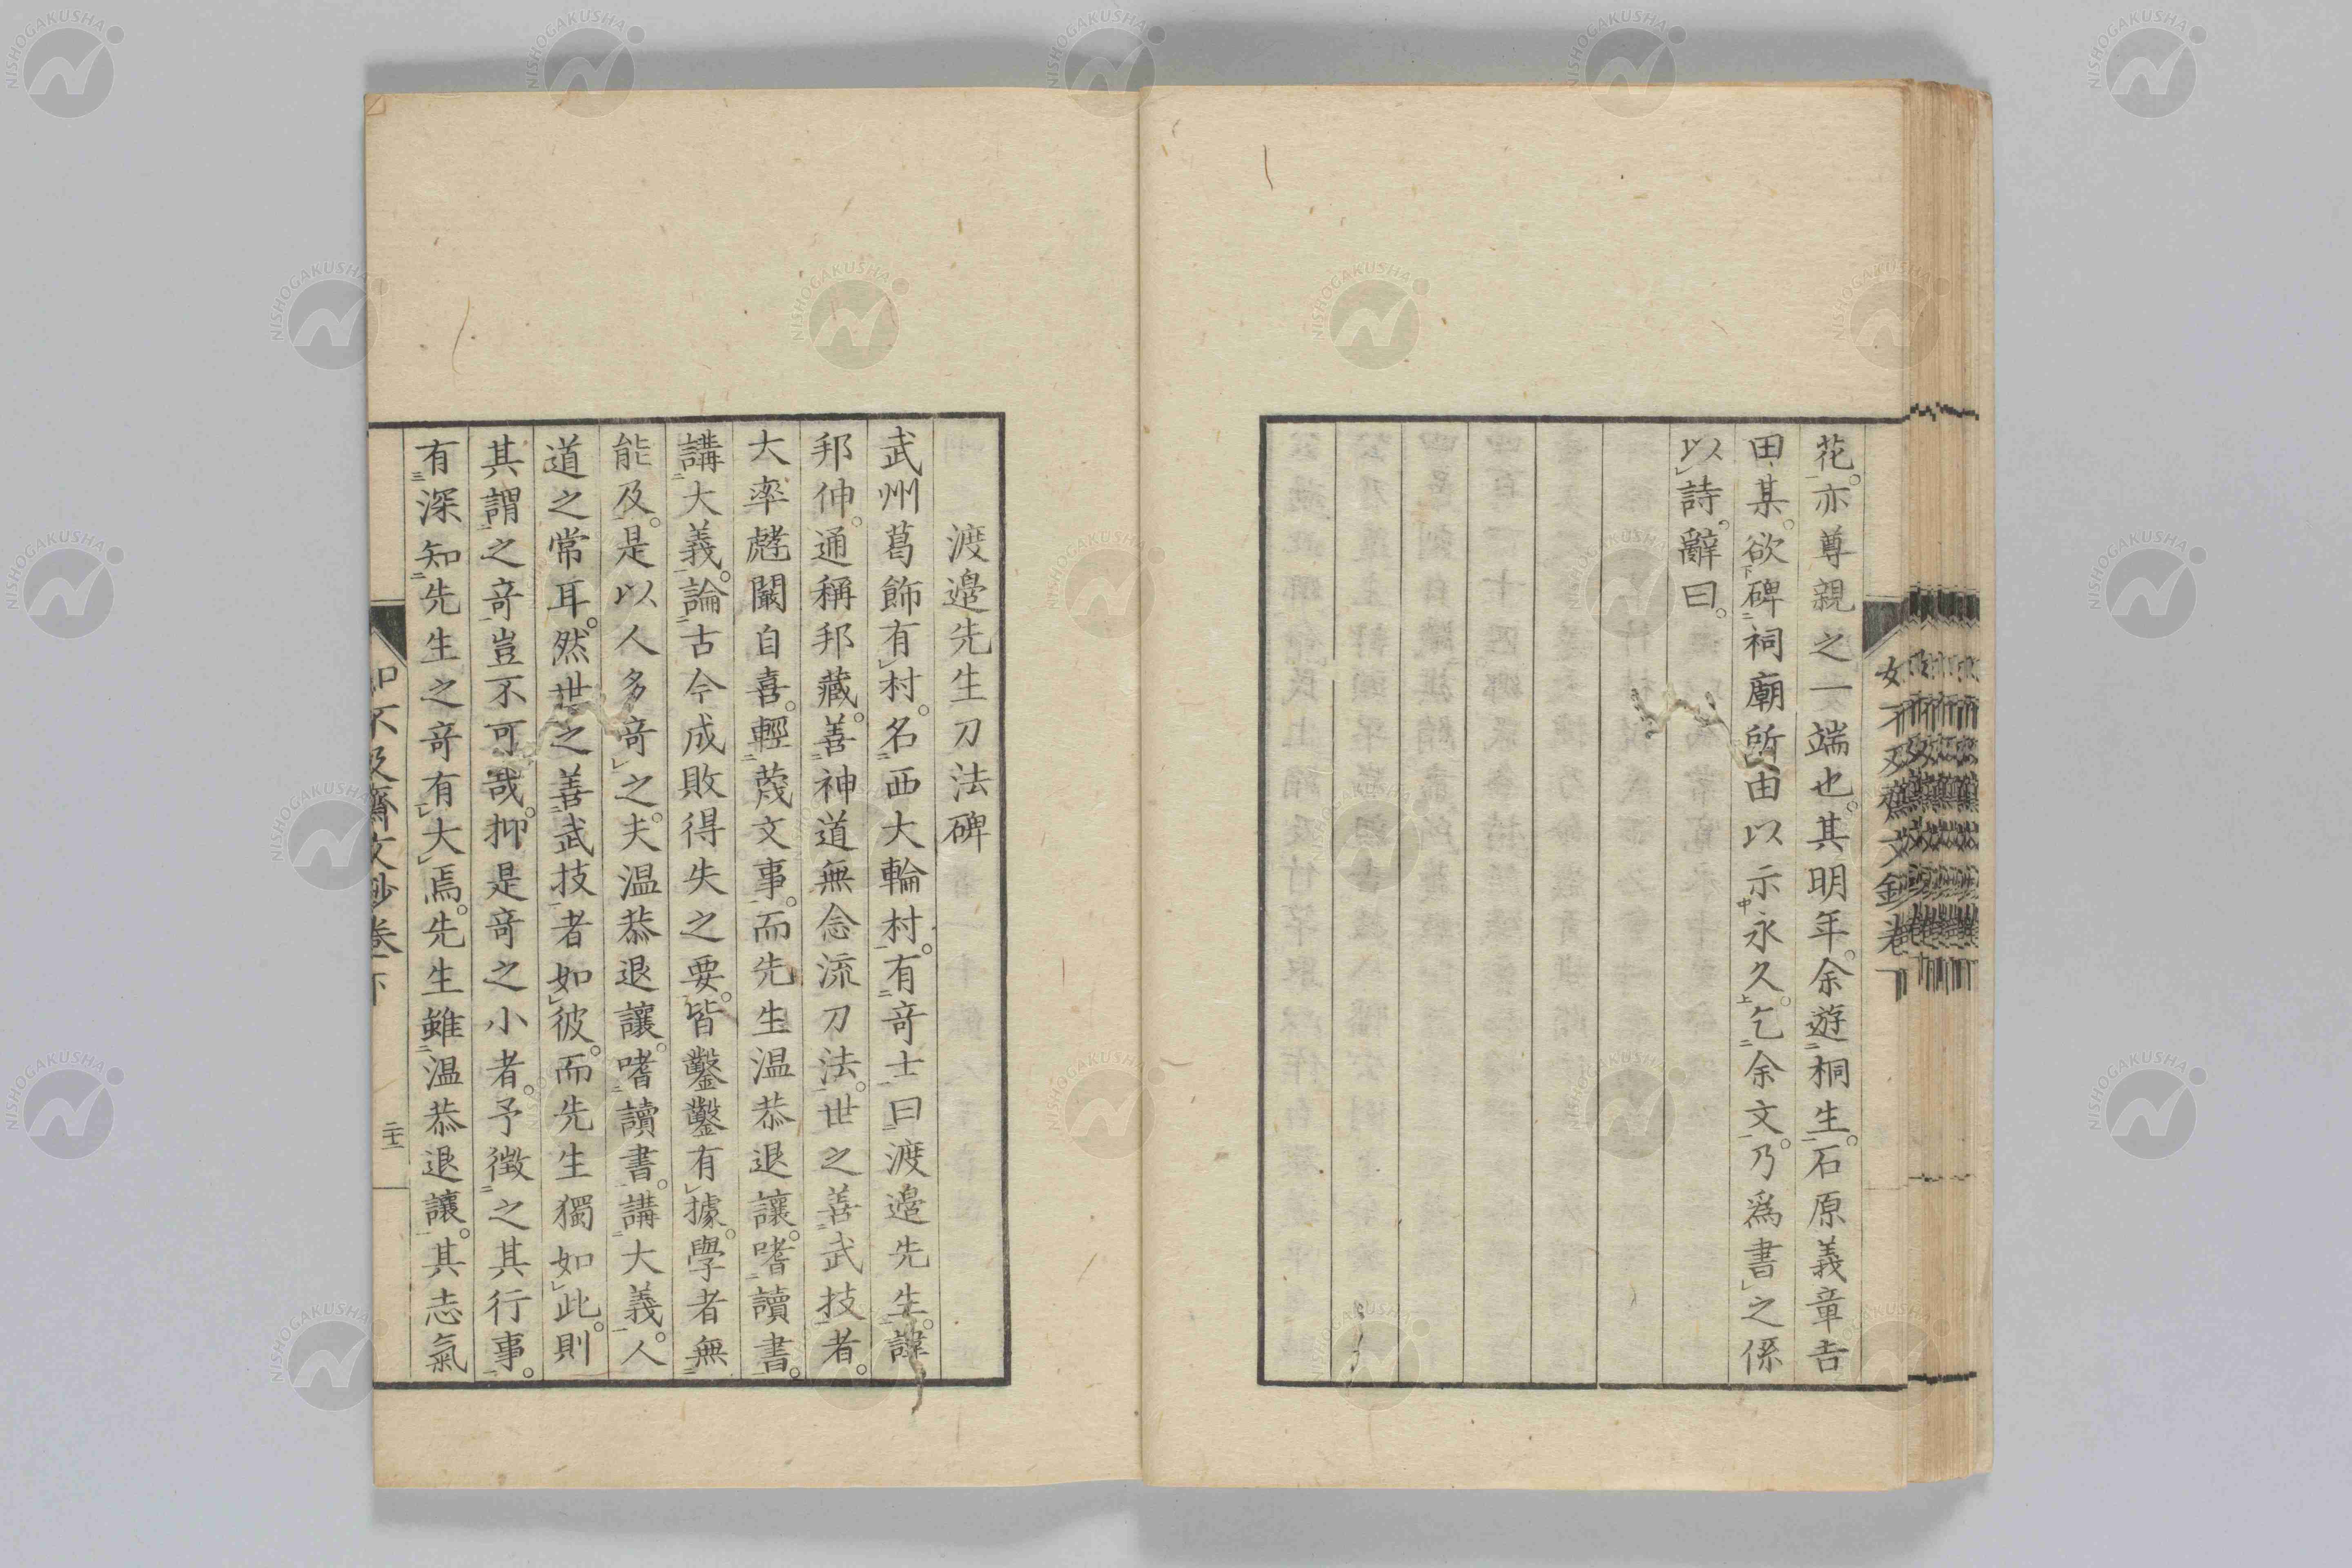 花。亦尊親之一端也。其明年。余遊桐生。石原義章吉
田某。欲碑祠廟所由以示永久。乞余文。乃爲書之係
以詩。辭曰。
渡邉先生刀法碑
武州葛飾有村。名西大輪村。有竒士曰渡邉先生。諱
邦仲。通稱邦藏。善神道無念流刀法。世之善武技者。
大率麤闞自喜。輕蔑文事。而先生温恭退讓。嗜讀書。
講大義。論古今成敗得失之要。皆鑿鑿有據。學者無
能及。是以人多竒之。夫温恭退讓。嗜讀書。講大義。人
道之常耳。然世之善武技者如彼。而先生獨如此。則
其謂之竒豈不可哉。抑是竒之小者。予徴之其行事。
有深知先生之竒有大焉。先生雖温恭退讓。其志氣
如不及齋文鈔卷下
二十一
NISHOGAKUSHA